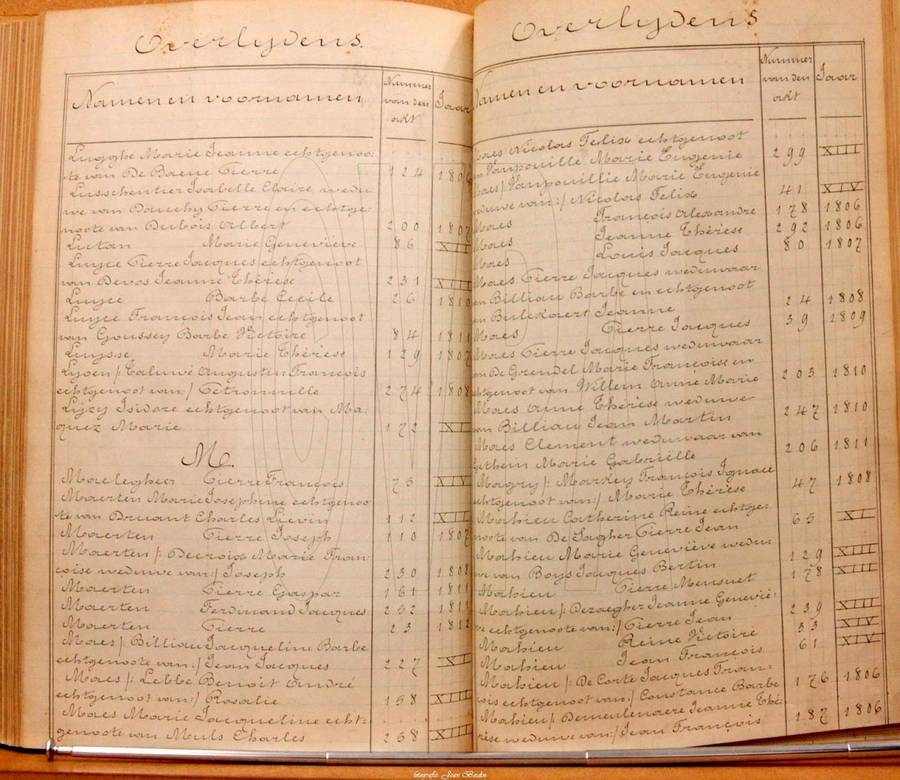 Overlydens.
Namen en voornamen
Nummer van den akt
Jaar
Luyghe Marie Jeanne echtgenoo:
te van De Baene Pierre 124
Lusschentier Isabelle Claire wedu
we van Douchy Pierre en echtge:
noote van Dubois Albert 200 1807
Lutan Marie Geneviève 86 XII
Luyce Pierre Jacques echtgenoot
van Devos Jeanne Thérèse 231 XII
Luyce Barbe Cecile 26
Luyce François Jean echtgenoot
van Goussey Barbe Victoire 84
Luysse Marie Thérèse 129 1807
Lyoen /: Caluwé Augustin François
echtgenoot van :/ Petronnille 274 1808
Lyzy Isidore echtgenoot van Ma:
quez Marie 172
M.
Maelegheer Pierre François 75 XII
Maerten Marie Josephine echtgenoo
te van Druant Charles Lievin 112 XIII
Maerten Pierre Joseph 110 1807
Maerten /: Decroix Marie Fran
çoise weduwe van :/ Joseph 230 1808
Maerten Pierre Gaspar 161 1811
Maerten Ferdinand Jacques 252 1811
Maerten Pierre 23 1812
Maes /: Billiau Jacqueline Barbe
echtgenoote van :/ Jean Jacques 227 XII
Maes /: Lebbe Benoit André
echtgenoot van :/ Rosalie 158 XIII
Maes Marie Jacqueline echt:
genoote van Muls Charles 258 XIII
Overlydens
Namen en voornamen
Nummer van den akt
Jaar
Maes Nicolas Felix echtgenoot
van Vampouille Marie Eugenie 299 XIII
Maes /: Vampouillie Marie Eugenie
weduwe van :/ Nicolas Felix 41 XIV
Maes François Alexandre 178 1806
Maes Jeanne Thérèse 292 1806
Maes Louis Jacques 80 1807
Maes Pierre Jacques weduwaar
van Billiau Barbe en echtgenoot
van Bulckaert Jeanne 24 1808
Maes Pierre Jacques 39 1809
Maes Pierre Jacques weduwaar
van De Grendel Marie Françoise en
echtgenoot van Willem Anne Marie 203 1810
Maes Anne Thérèse weduwe
van Billiau Jean Martin 247 1810
Maes Clement weduwaar van
Gethem Marie Gabriëlle 206 1811
Magry /: Markey François Ignace
echtgenoot van :/ Marie Thérèse 47 1808
Mahieu Catherine Reine echtge:
noote van De Jagher Pierre Jean 65 XI
Mahieu Marie Geneviève wedu:
we van Boys Jacques Bertin 129 XIII
Mahieu Pierre Mensuet 178 XIII
Mahieu /: Dezaegher Jeanne Geneviè:
ve echtgenoote van :/ Pierre Jean 239 XIII
Mahieu Reine Victoire 33 XIV
Mahieu Jean François 61 XIV
Mahieu /: De Corte Jacques Fran:
çois echtgenoot van :/ Constance Barbe 176 1806
Mahieu /: Demeulenaere Jeanne Thé:
rèse weduwe van :/ Jean François 187 1806
fotografie Jean